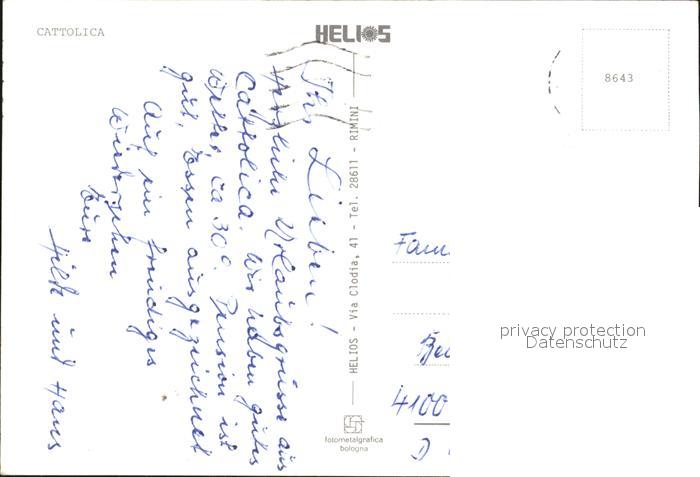 CATTOLICA
HELIOS
8643
Ihr Lieben!
herzliche Urlaubsgrüsse aus
Cattolica. Wir haben gutes
Wetter, ca 30°. Pension ist
gut, Essen ausgezeichnet
Auf ein freudiges
Wiedersehen
Eure
Hilde und Hans
HELIOS - Via Clodia, 41 - Tel. 28611 - RIMINI
fotometalgrafica
bologna
Fam
4100
D
privacy protection
Datenschutz